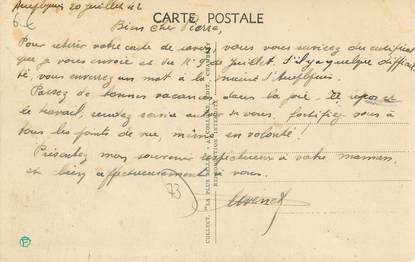 CARTE POSTALE
20 juillet 42
6 €
Bien cher Pierre,
Pour retirer votre carte de savoir, vous vous servirez du certificat
que je vous envoie et du N° de Juillet. S'il y a quelque difficul-
té, vous enverrez un mot à la mairie
Passez de bonnes vacances dans la joie, le repos et
le travail, rendez service autour de vous, fortifiez vous à
tous les points de vue, même en volonté!
Présentez mon souvenir respectueux à votre maman
et bien affectueusement à vous.
73
COLLECT. "LA PLUS BELLE"
REPRODUCTION INTERDITE